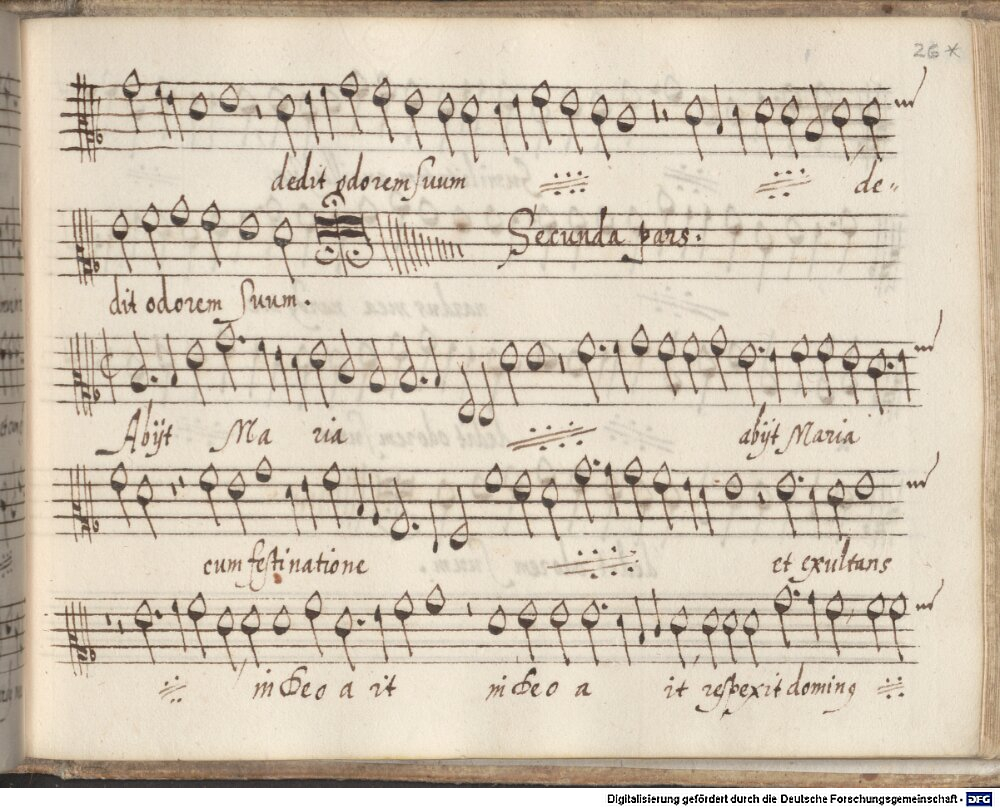 26*
dedit odorem suum de=
Secunda pars.
dit odorem Suum.
Abijt Maria abijt Maria
cum festinatione et exultans
in Deo ait in Deo ait respexit dominꝰ
Digitalisierung gefördert durch die Deutsche Forschungsgemeinschaft - DFG